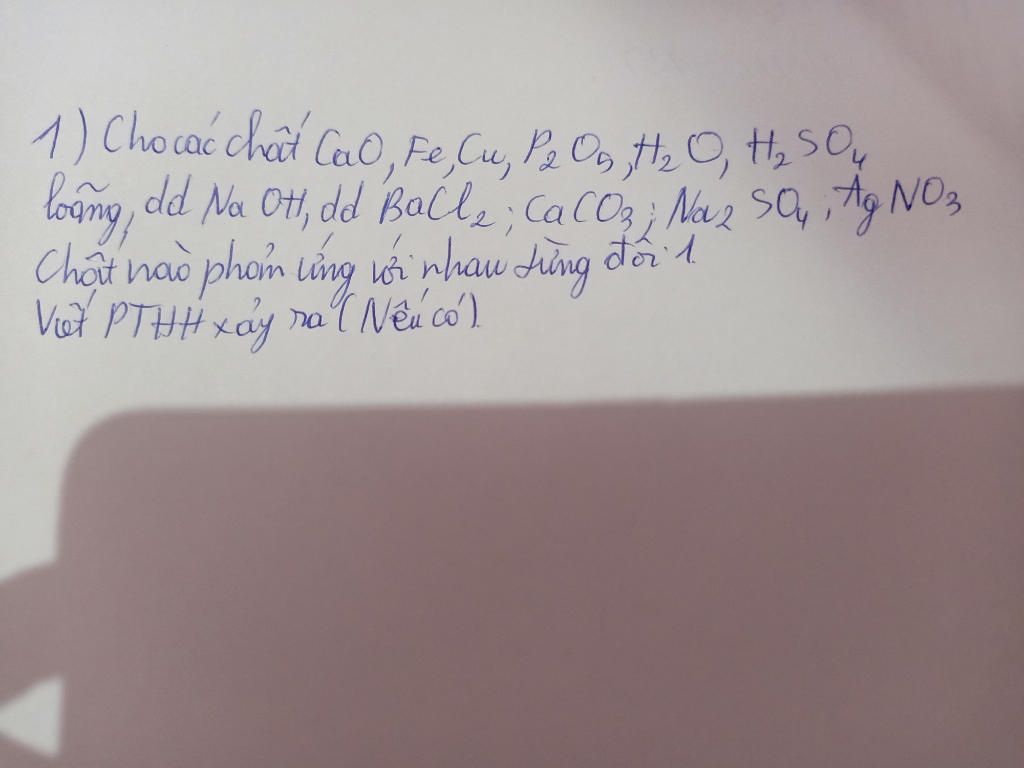 1) Cho các chất CaO, Fe, Cu, P₂O₅, H₂O, H₂SO₄
loãng, dd NaOH, dd BaCl₂; CaCO₃; Na₂SO₄; AgNO₃
Chất nào phản ứng với nhau từng đôi 1.
Viết PTHH xảy ra (Nếu có).